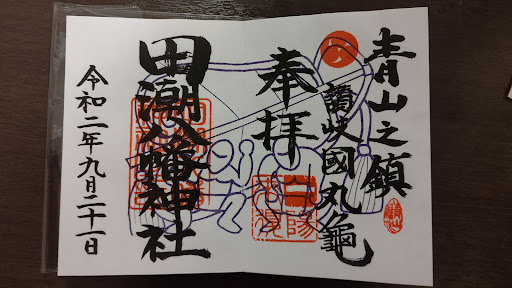 青山之鎮
讃岐國丸龜
奉拝
田潮八幡神社
令和二年九月二十一日